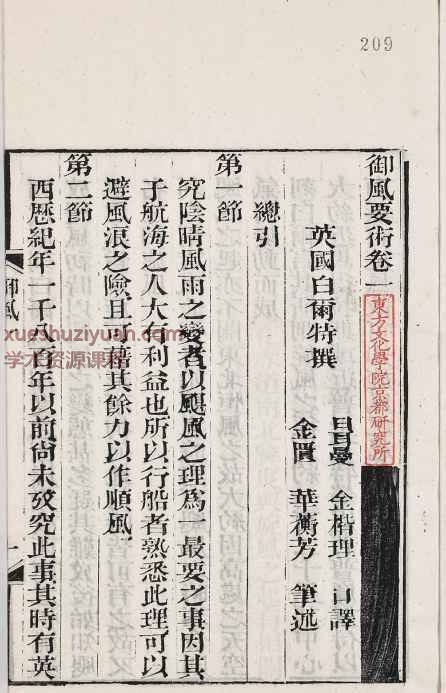 209
御風要術卷一
東方文化學院京都研究所
英國白爾特撰
布國 金楷理 口譯
金匱 華蘅芳 筆述
總引
第一節
究陰晴風雨之變者以颶風之理爲一最要之事因其
于航海之人大有利益也所以行船者熟悉此理可以
避風浪之險且可藉其餘力以作順風
第二節
西歷紀年一千八百年以前尙未攷究此事其時有英
御風
一
xueshuziyuan.com
学术资源课程